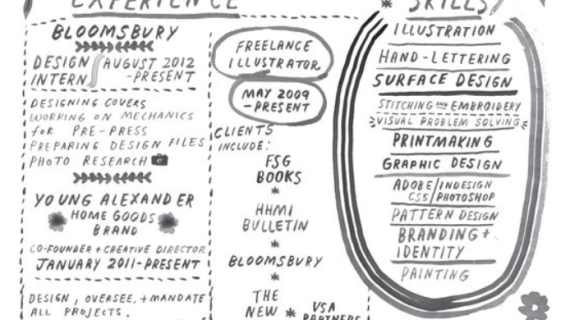 EXPERIENCE
BLOOMSBURY
DESIGN INTERN
AUGUST 2012 -PRESENT
DESIGNING COVERS
WORKING ON MECHANICS
for PRE-PRESS
PREPARING DESIGN FILES
PHOTO RESEARCH
YOUNG ALEXANDER
HOME GOODS
BRAND
CO-FOUNDER + CREATIVE DIRECTOR
JANUARY 2011-PRESENT
DESIGN, OVERSEE, + MANDATE
ALL PROJECTS.
FREELANCE
ILLUSTRATOR
MAY 2009
-PRESENT
CLIENTS
INCLUDE:
FSG
BOOKS
*
HHMI
BULLETIN
*
BLOOMSBURY
*
THE
NEW * VSA
PARTNERS
* SKILLS
ILLUSTRATION
HAND-LETTERING
SURFACE DESIGN
STITCHING AND EMBROIDERY
VISUAL PROBLEM SOLVING
PRINTMAKING
GRAPHIC DESIGN
ADOBE/INDESIGN
CS5/PHOTOSHOP
PATTERN DESIGN
BRANDING +
IDENTITY
PAINTING